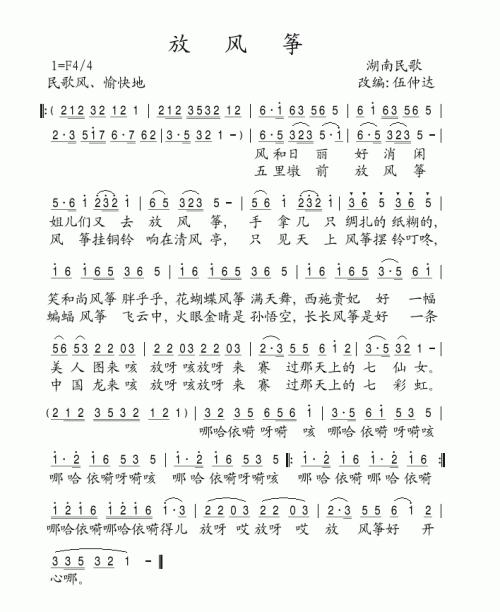 放 风 筝
1=F4/4 湖南民歌
民歌风、愉快地 改编:伍仲达
‖:( 212 32 12 1 | 212 3532 12 | 6·1 63 56 5 | 6·1 63 56 5 |
2·3 517 6·7 62 | 3·5 32 1 -) | 6·5 323 5 - | 6·5 323 5 - |
风和日 丽 好 消 闲
五里墩 前 放 风 筝
5·6 1 232 1 | 65 323 5 - | 5·6 1 232 1 | 3 6 5 3 6 5 |
姐儿们又 去 放 风 筝, 手 拿 几 只 绸扎的 纸糊的,
风 筝挂铜铃 响在清风 亭, 只 见 天 上 风筝摆 铃叮咚,
16 165 35 5 | 16 165 36 5 | 16 165 3·5 61 |
笑和尚风筝 胖乎乎, 花蝴蝶风筝 满天舞, 西施贵妃 好 一幅
蝙蝠 风筝 飞云中, 火眼金睛是 孙悟空, 长长风筝是好 一 条
56 53 2 2 03 | 2 2 03 2 2 03 | 2·3 55 61 2 | 3·5 32 1 - |
美 人 图来咳 放呀 咳放呀 来 赛 过那天上的 七 仙 女。
中 国 龙来咳 放呀 咳放呀 来 赛 过那天上的 七 彩 虹。
(2 12 3532 121) | 6165 323 565 6 1 | 3·5 61 53 5 |
哪哈依嗬 呀嗬 咳 哪哈 依嗬呀嗬咳
1·2 16 53 5 | 1·2 16 53 5 ‖: 1·2 16 | 1·2 16 :‖
哪·哈 依嗬呀嗬咳 哪·哈 依嗬呀嗬咳 哪·哈 依嗬 哪·哈 依嗬
1216 1216 1·3 | 2 2 03 2 2 03 | 2·3 55 61 2 |
哪哈依嗬哪哈依嗬得儿 放呀 哎放呀 哎 放 风筝好 开
3 35 32 1 - | 1 - ‖
心哪。